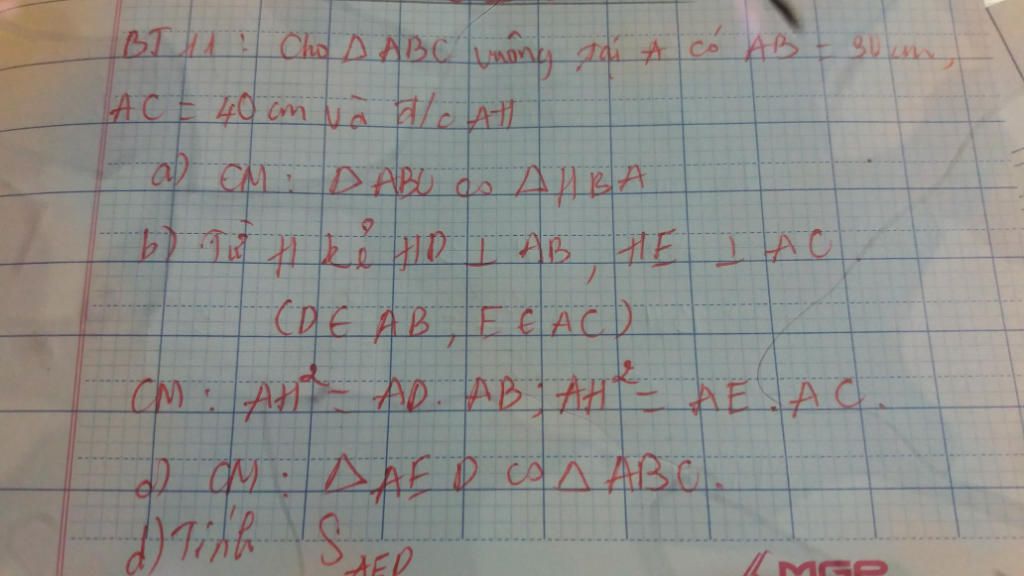 BT 11: Cho Δ ABC vuông tại A có AB = 30 cm,
AC = 40 cm và đ/c AH
a) CM: Δ ABC ∽ Δ HBA
b) Từ H kẻ HD ⊥ AB, HE ⊥ AC
(D ∈ AB, E ∈ AC)
CM: AH² = AD. AB; AH² = AE. AC.
c) CM: Δ AED ∽ Δ ABC.
d) Tính S_AED
MGP